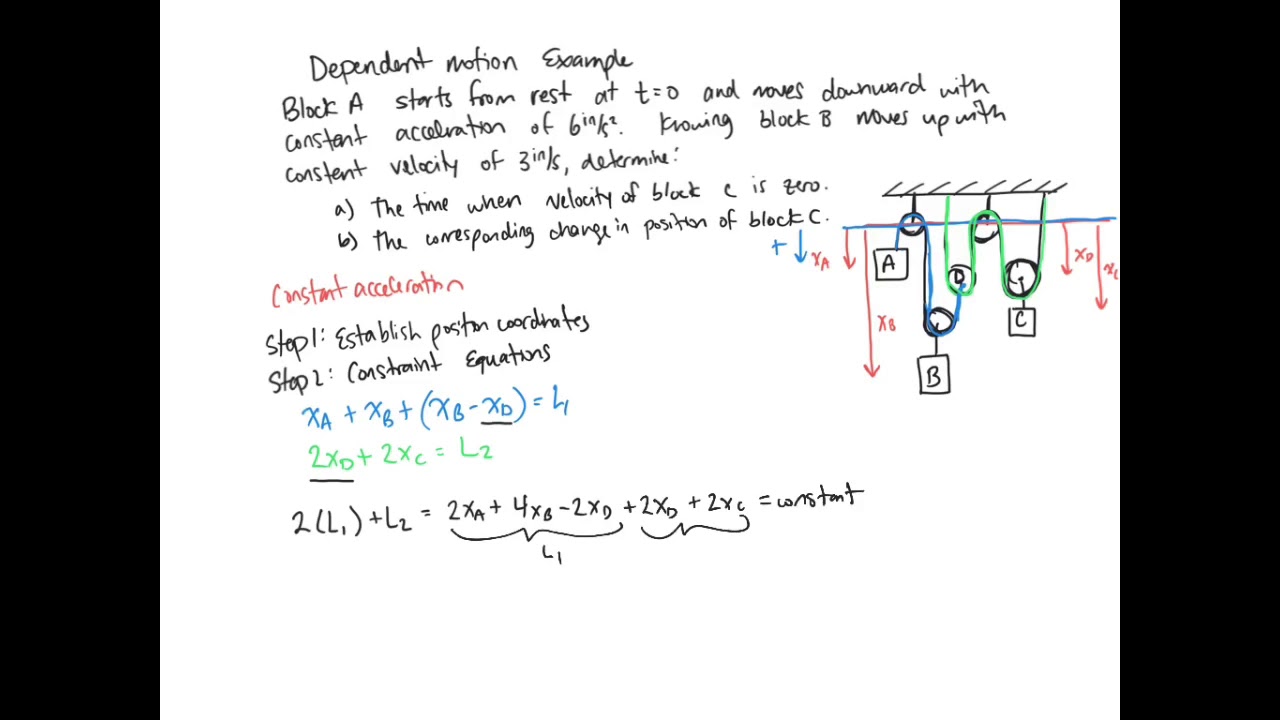 Dependent motion Example
Block A starts from rest at t=0 and moves downward with
constant accelration of 6 in/s². Knowing block B moves up with
constent velocity of 3 in/s, determine:
a) the time when velocity of block c is zero.
b) the corresponding change in position of block C.
+ ↓ xA
xB
xD
xC
A
D
B
C
Constant acceleration
Step 1: Establish positon coordinates
Step 2: Constraint Equations
xA + xB + (xB - xD) = L1
2xD + 2xC = L2
2(L1) + L2 = 2xA + 4xB - 2xD + 2xD + 2xC = constant
L1